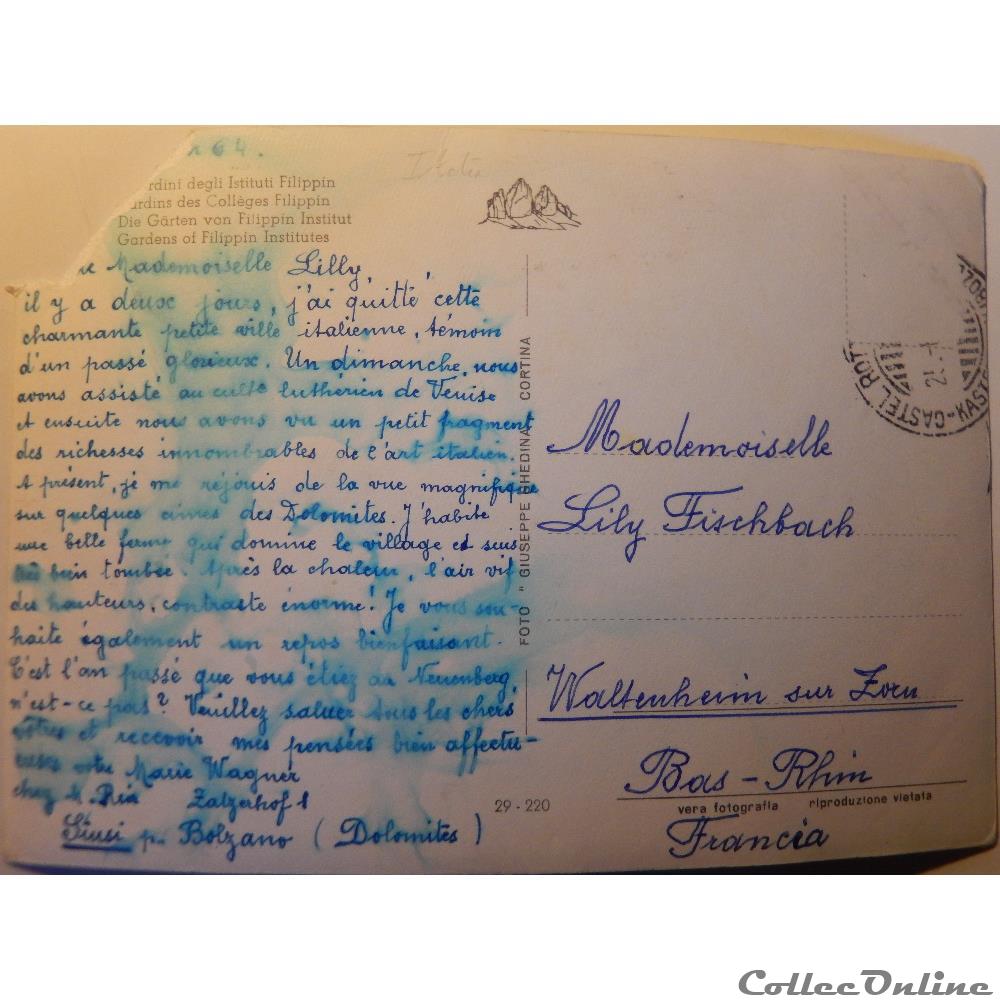 64.
Italie
rdini degli Istituti Filippin
ardins des Collèges Filippin
Die Gärten von Filippin Institut
Gardens of Filippin Institutes
Mademoiselle Lilly,
il y a deux jours, j'ai quitté cette
charmante petite ville italienne, témoin
d'un passé glorieux. Un dimanche, nous
avons assisté au culte luthérien de Venise
et ensuite nous avons vu un petit fragment
des richesses innombrables de l'art italien.
A présent, je me réjouis de la vue magnifique
sur quelques cimes des Dolomites. J'habite
une belle ferme qui domine le village et suis
très bien tombée. Après la chaleur, l'air vif
des hauteurs, contraste énorme! Je vous sou-
haite également un repos bienfaisant.
C'est l'an passé que vous étiez au Neuenberg,
n'est-ce pas? Veuillez saluer tous les chers
vôtres et recevoir mes pensées bien affectu-
euses votre Marie Wagner
chez M. Ria Zatzerhof 1
Siusi p. Bolzano (Dolomites)
FOTO " GIUSEPPE GHEDINA " CORTINA
29 - 220
CASTEL ROT
KAST
Mademoiselle
Lily Fischbach
Waltenheim sur Zorn
Bas-Rhin
vera fotografia riproduzione vietata
Francia
CollecOnline